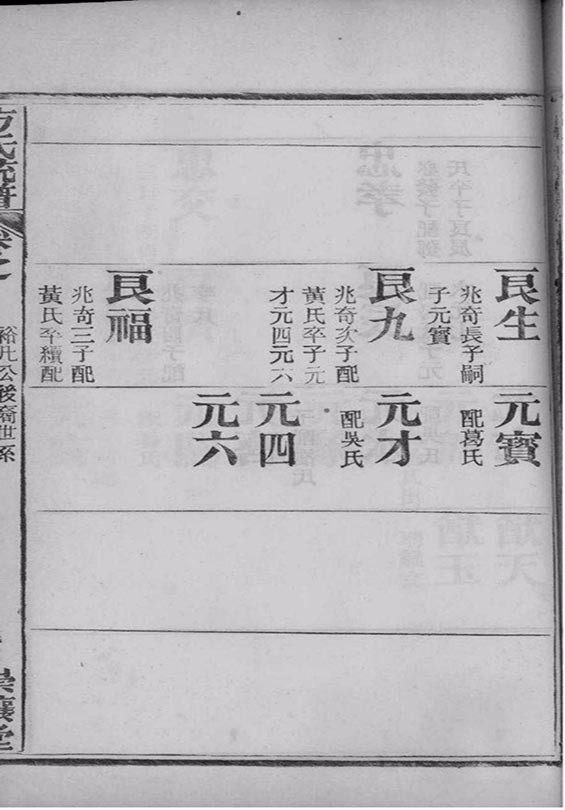 良生
兆奇長子嗣
子元寶
良九
兆奇次子配
黃氏卒子元
才元四元六
良福
兆奇三子配
黃氏卒續配
元寶
配葛氏
元才
配吳氏
元四
元六
方氏統譜
卷之
裕九公後裔世系
崇讓堂